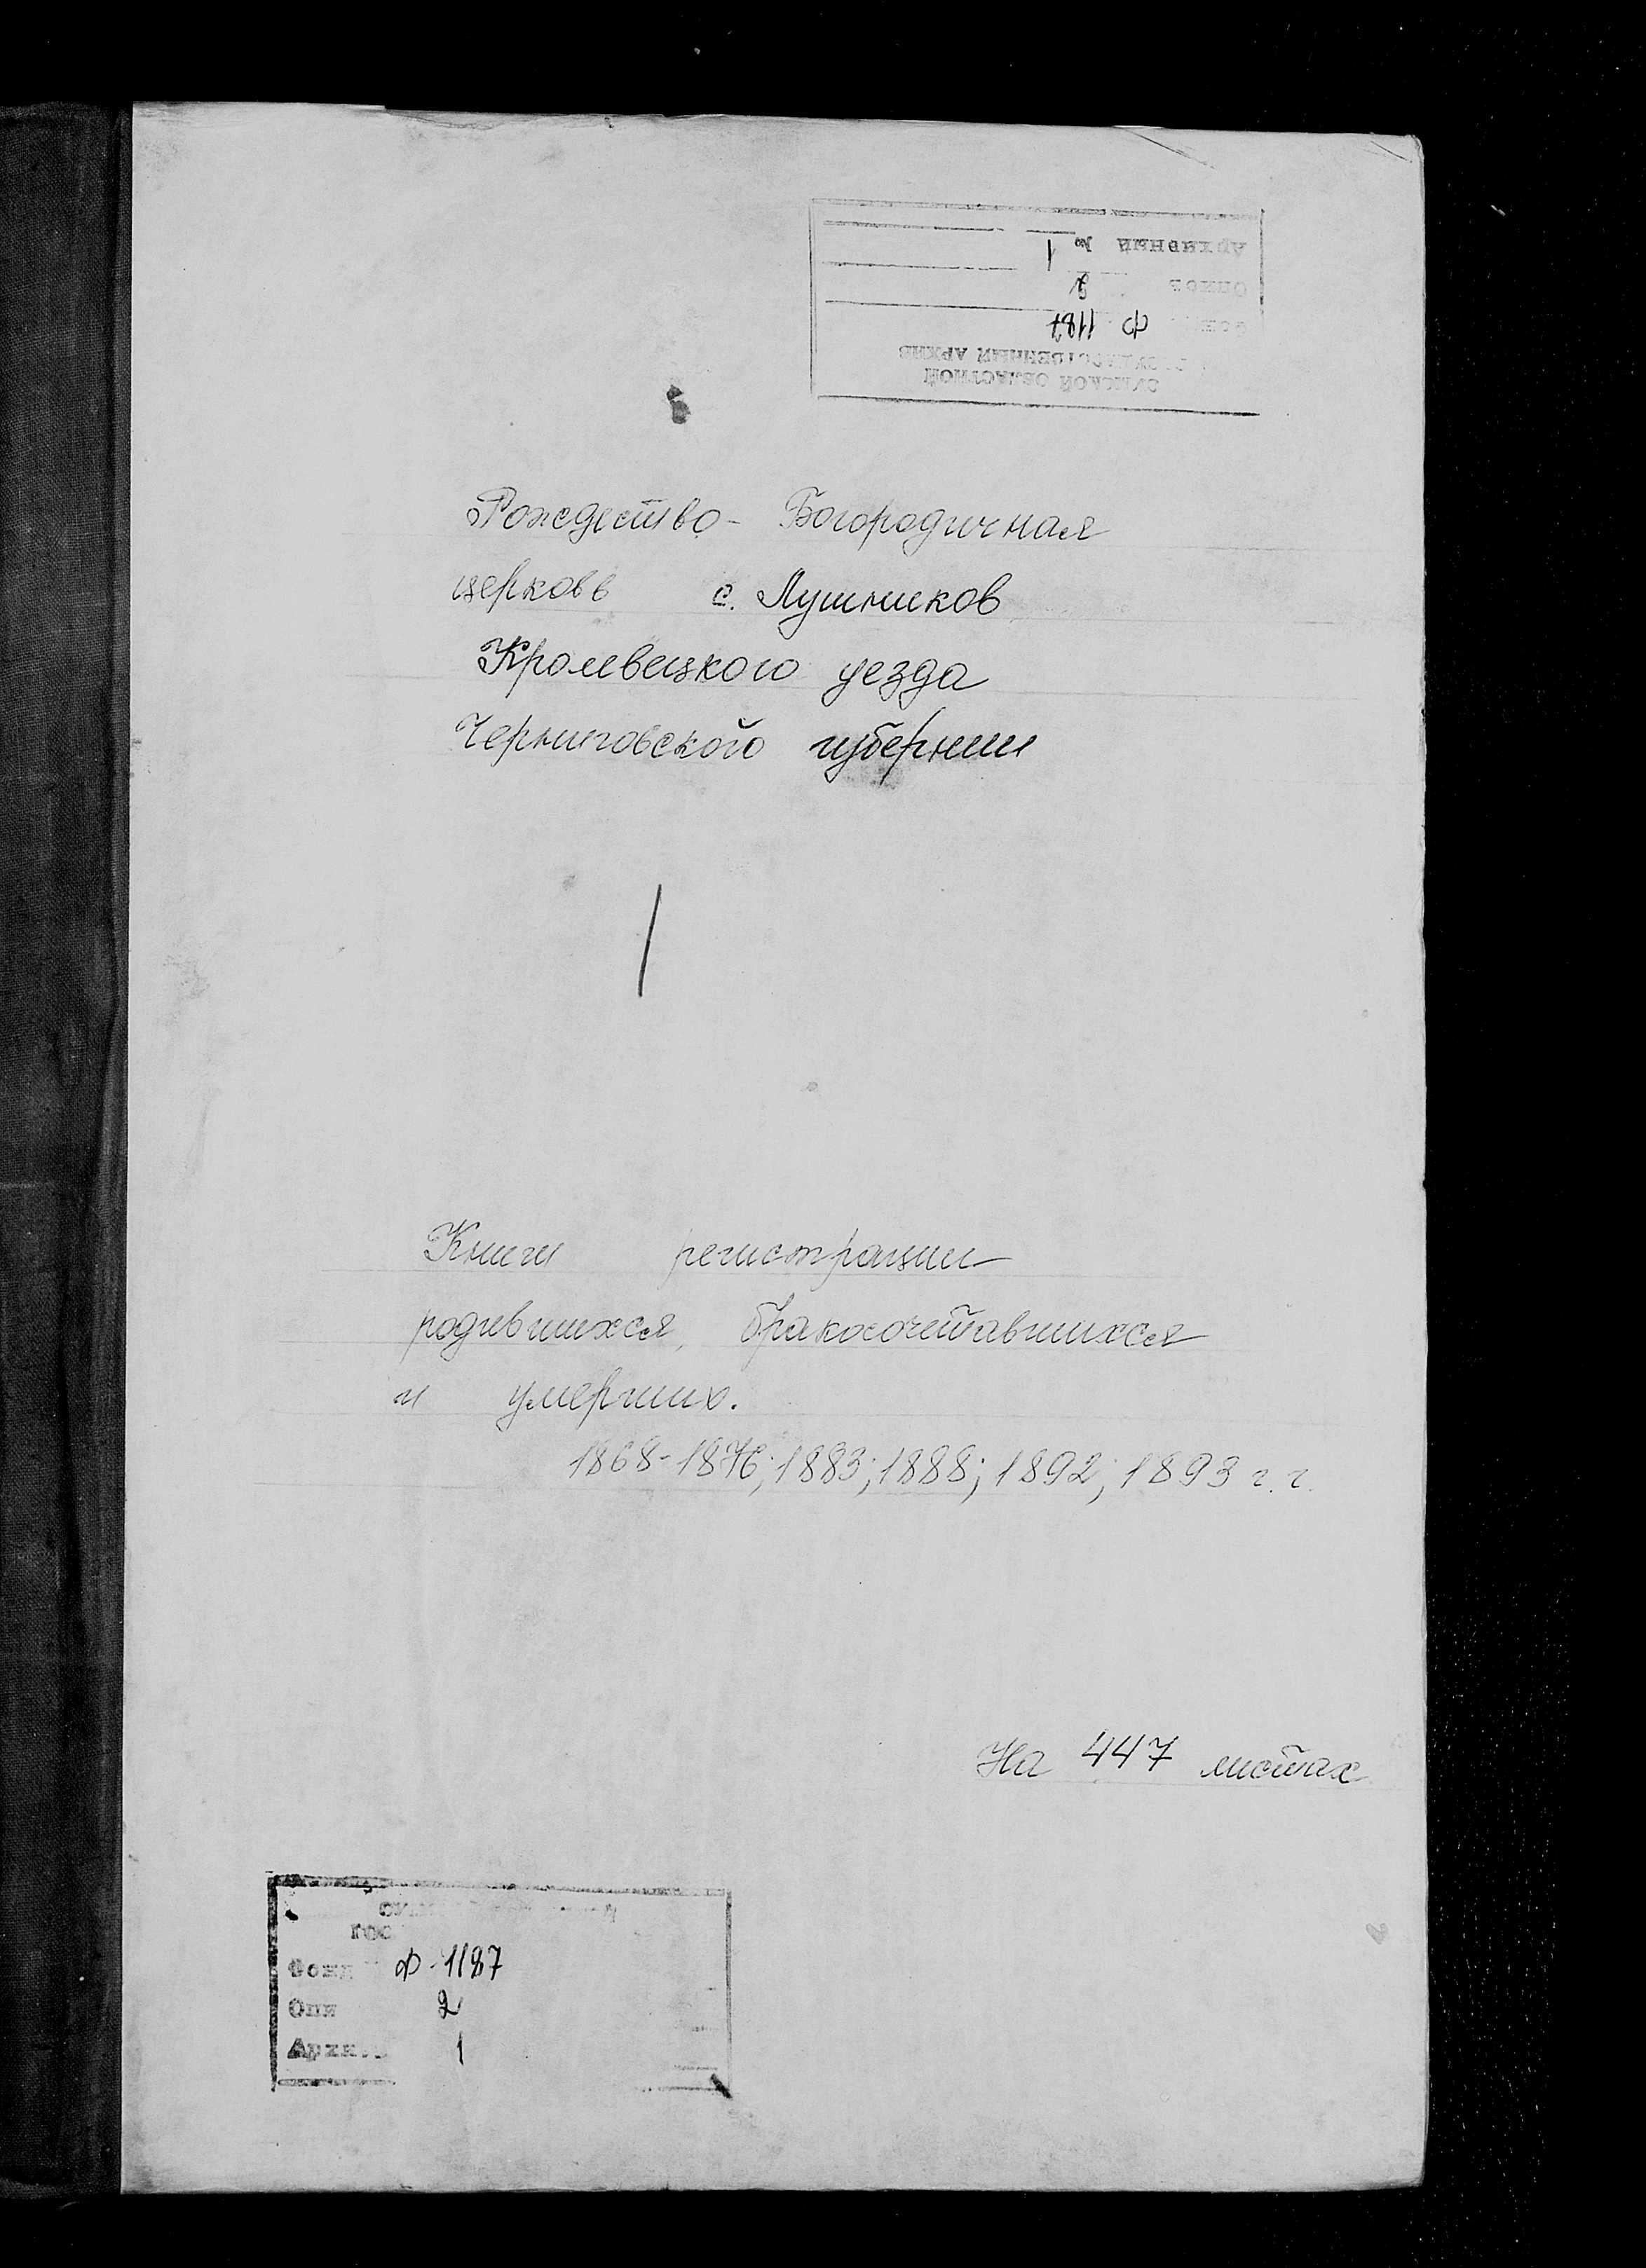 Архивный № 1
Опись 2
Фонд Ф 1187
ГОСУДАРСТВЕННЫЙ АРХИВ
СУМСКОЙ ОБЛАСТНОЙ
Рождество- Богородичная
церковь с. Лушников
Кролевецкого уезда
Черниговской губернии
1
Книги регистрации
родившихся, бракосочетавшихся
и умерших.
1868-1876; 1883; 1888; 1892; 1893 г.г.
На 447 листах
Фонд Ф-1187
Опи 2
Архи 1